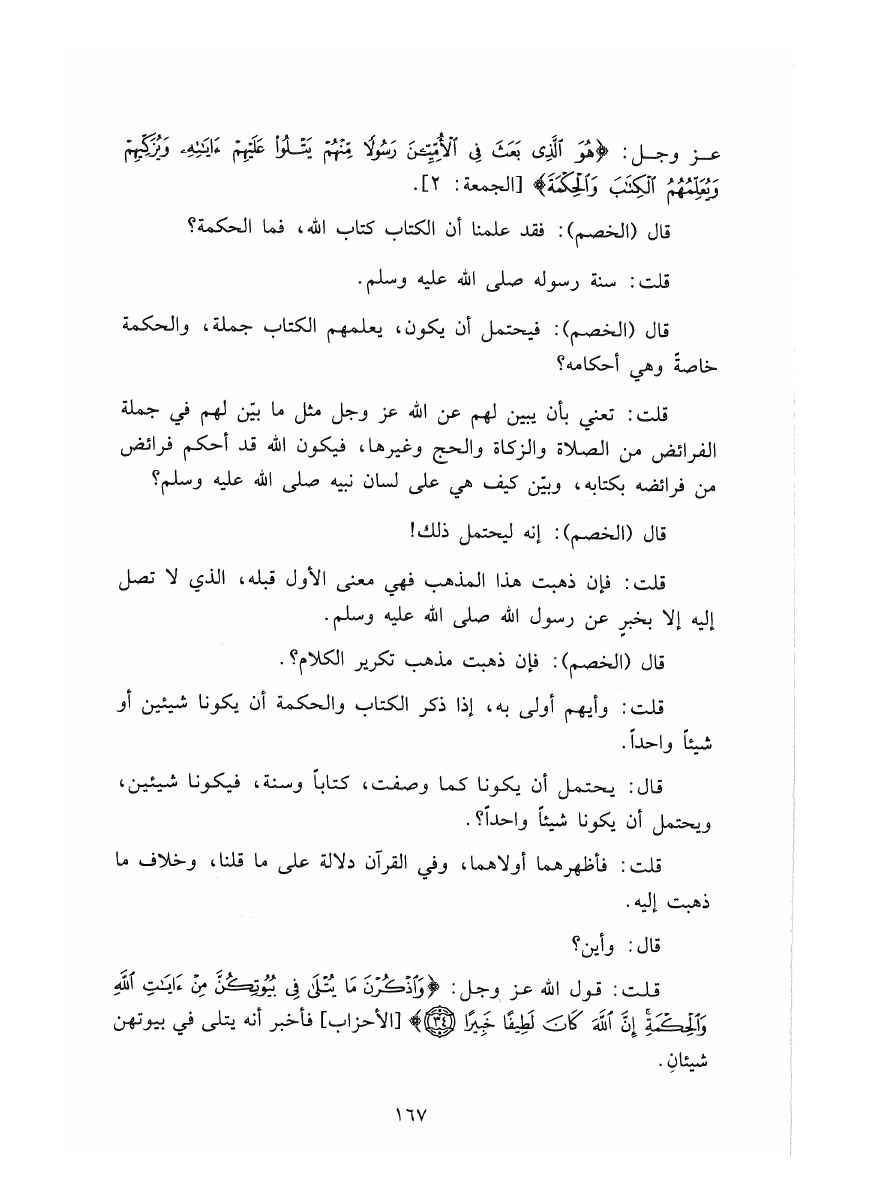 عـز وجـل: ﴿هُوَ ٱلَّذِى بَعَثَ فِى ٱلْأُمِّيِّـۧنَ رَسُولًا مِّنْهُمْ يَتْـلُوا۟ عَلَيْهِمْ ءَايَـٰتِهِۦ وَيُزَكِّيهِمْ
وَيُعَلِّمُهُمُ ٱلْكِتَـٰبَ وَٱلْحِكْمَةَ﴾ [الجمعة: ٢].
قال (الخصم): فقد علمنا أن الكتاب كتاب الله، فما الحكمة؟
قلت: سنة رسوله صلى الله عليه وسلم.
قال (الخصم): فيحتمل أن يكون، يعلمهم الكتاب جملة، والحكمة
خاصةً وهي أحكامه؟
قلت: تعني بأن يبين لهم عن الله عز وجل مثل ما بيّن لهم في جملة
الفرائض من الصلاة والزكاة والحج وغيرها، فيكون الله قد أحكم فرائض
من فرائضه بكتابه، وبيّن كيف هي على لسان نبيه صلى الله عليه وسلم؟
قال (الخصم): إنه ليحتمل ذلك!
قلت: فإن ذهبت هذا المذهب فهي معنى الأول قبله، الذي لا تصل
إليه إلا بخبرٍ عن رسول الله صلى الله عليه وسلم.
قال (الخصم): فإن ذهبت مذهب تكرير الكلام؟.
قلت: وأيهم أولى به، إذا ذكر الكتاب والحكمة أن يكونا شيئين أو
شيئاً واحداً.
قال: يحتمل أن يكونا كما وصفت، كتاباً وسنة، فيكونا شيئين،
ويحتمل أن يكونا شيئاً واحداً؟.
قلت: فأظهرهما أولاهما، وفي القرآن دلالة على ما قلنا، وخلاف ما
ذهبت إليه.
قال: وأين؟
قلـت: قـول الله عـز وجـل: ﴿وَٱذْكُرْنَ مَا يُتْلَىٰ فِى بُيُوتِكُنَّ مِنْ ءَايَـٰتِ ٱللَّهِ
وَٱلْحِكْمَةِ ۚ إِنَّ ٱللَّهَ كَانَ لَطِيفًا خَبِيرًا ﴿٣٤﴾﴾ [الأحزاب] فأخبر أنه يتلى في بيوتهن
شيئانِ.
١٦٧